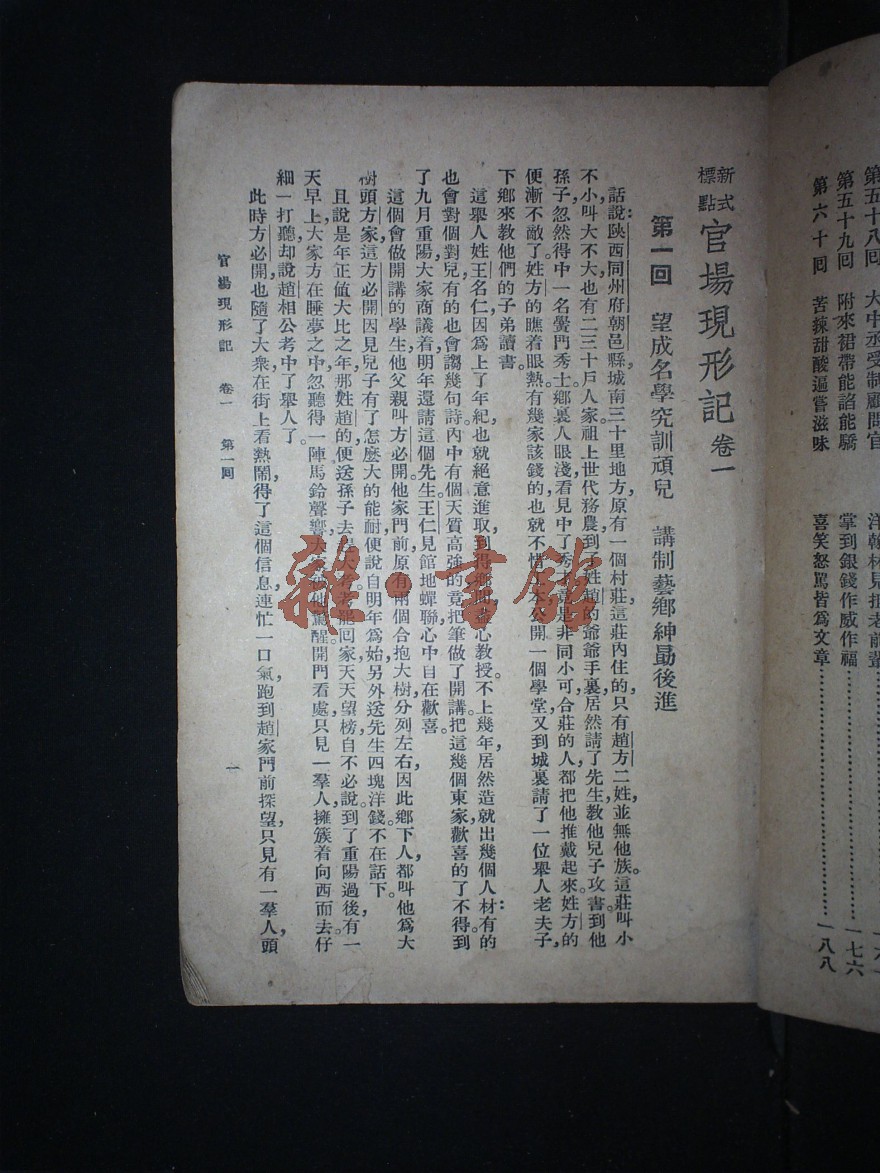 第五十八回 大中丞受制顧問官 洋翰林見拒老前輩
第五十九回 附來裙帶能諂能驕 掌到銀錢作威作福…………一七六
第六十回 苦辣甜酸遍嘗滋味 喜笑怒罵皆爲文章…………一八八
新式標點 官場現形記 卷一
第一回 望成名學究訓頑兒 講制藝鄉紳勗後進
話說:陝西同州府朝邑縣,城南三十里地方,原有一個村莊;這莊內住的,只有趙方二姓,並無他族。這莊叫小
不小,叫大不大,也有二三十戶人家。祖上世代務農,到了姓趙的爺爺手裏,居然請了先生,教他兒子攻書;到他
孫子,忽然得中一名黌門秀士。鄉裏人眼淺,看見中了秀是非同小可,合莊的人,都把他推戴起來。姓方的
便漸不敵了。姓方的瞧着眼熱,有幾家該錢的,也就不惜本,公開一個學堂;又到城裏請了一位舉人老夫子,
下鄉來教他們的子弟讀書。
這舉人姓王名仁,因爲上了年紀,也就絕意進取,到得鄉間,盡心教授。不上幾年,居然造就出幾個人材:有的
也會對個對兒,有的也會謅幾句詩。內中有個天質高強的,竟把筆做了開講。把這幾個東家,歡喜的了不得。到
了九月重陽,大家商議着,明年還請這個先生。王仁見館地蟬聯,心中自在歡喜。
這個會做開講的學生,他父親叫方必開。他家門前,原有兩個合抱大樹,分列左右,因此鄉下人都叫他爲大
樹頭方家。這方必開因見兒子有了怎麼大的能耐,便說自明年爲始,另外送先生四塊洋錢。不在話下。
且說是年正值大比之年,那姓趙的便送孫子去考罷回家,天天望榜,自不必說。到了重陽過後,有一
天早上,大家方在睡夢之中,忽聽得一陣馬鈴聲響,大他驚醒。開門看處,只見一羣人,擁簇着向西而去。仔
細一打聽,却說趙相公考中了舉人了。
此時方必開也隨了大衆在街上看熱鬧,得了這個信息,連忙一口氣跑到趙家門前探望,只見有一羣人,頭
官場現形記 卷一 第一回 一
雜·書館